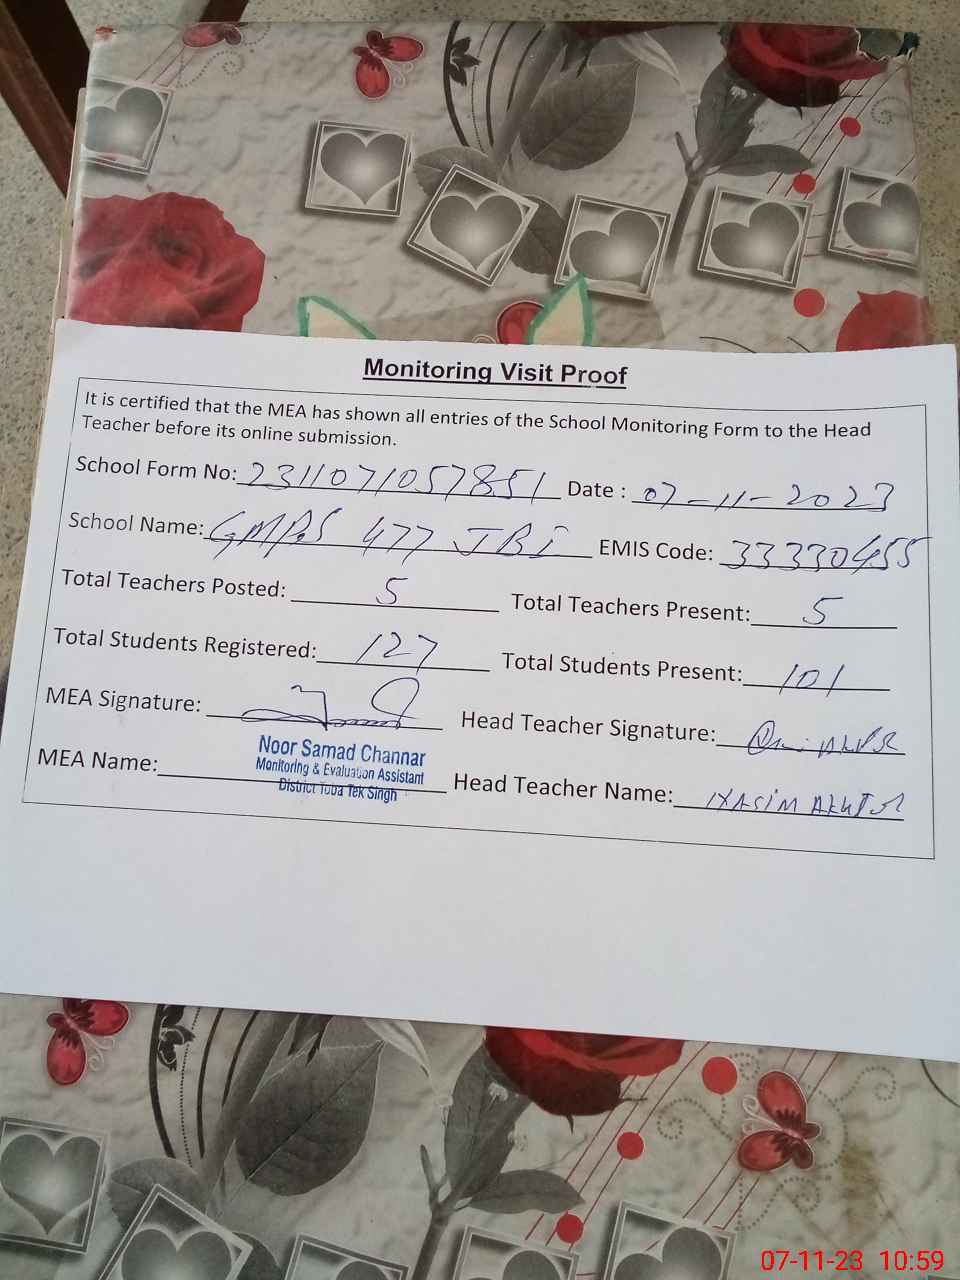 Monitoring Visit Proof
It is certified that the MEA has shown all entries of the School Monitoring Form to the Head
Teacher before its online submission.
School Form No: 2311071057851 Date : 07-11-2023
School Name: GMPS 477 JBI EMIS Code: 33330455
Total Teachers Posted: 5 Total Teachers Present: 5
Total Students Registered: 127 Total Students Present: 101
MEA Signature: Head Teacher Signature:
Noor Samad Channar
Monitoring & Evaluation Assistant
District Toba Tek Singh
MEA Name: Head Teacher Name:
07-11-23 10:59